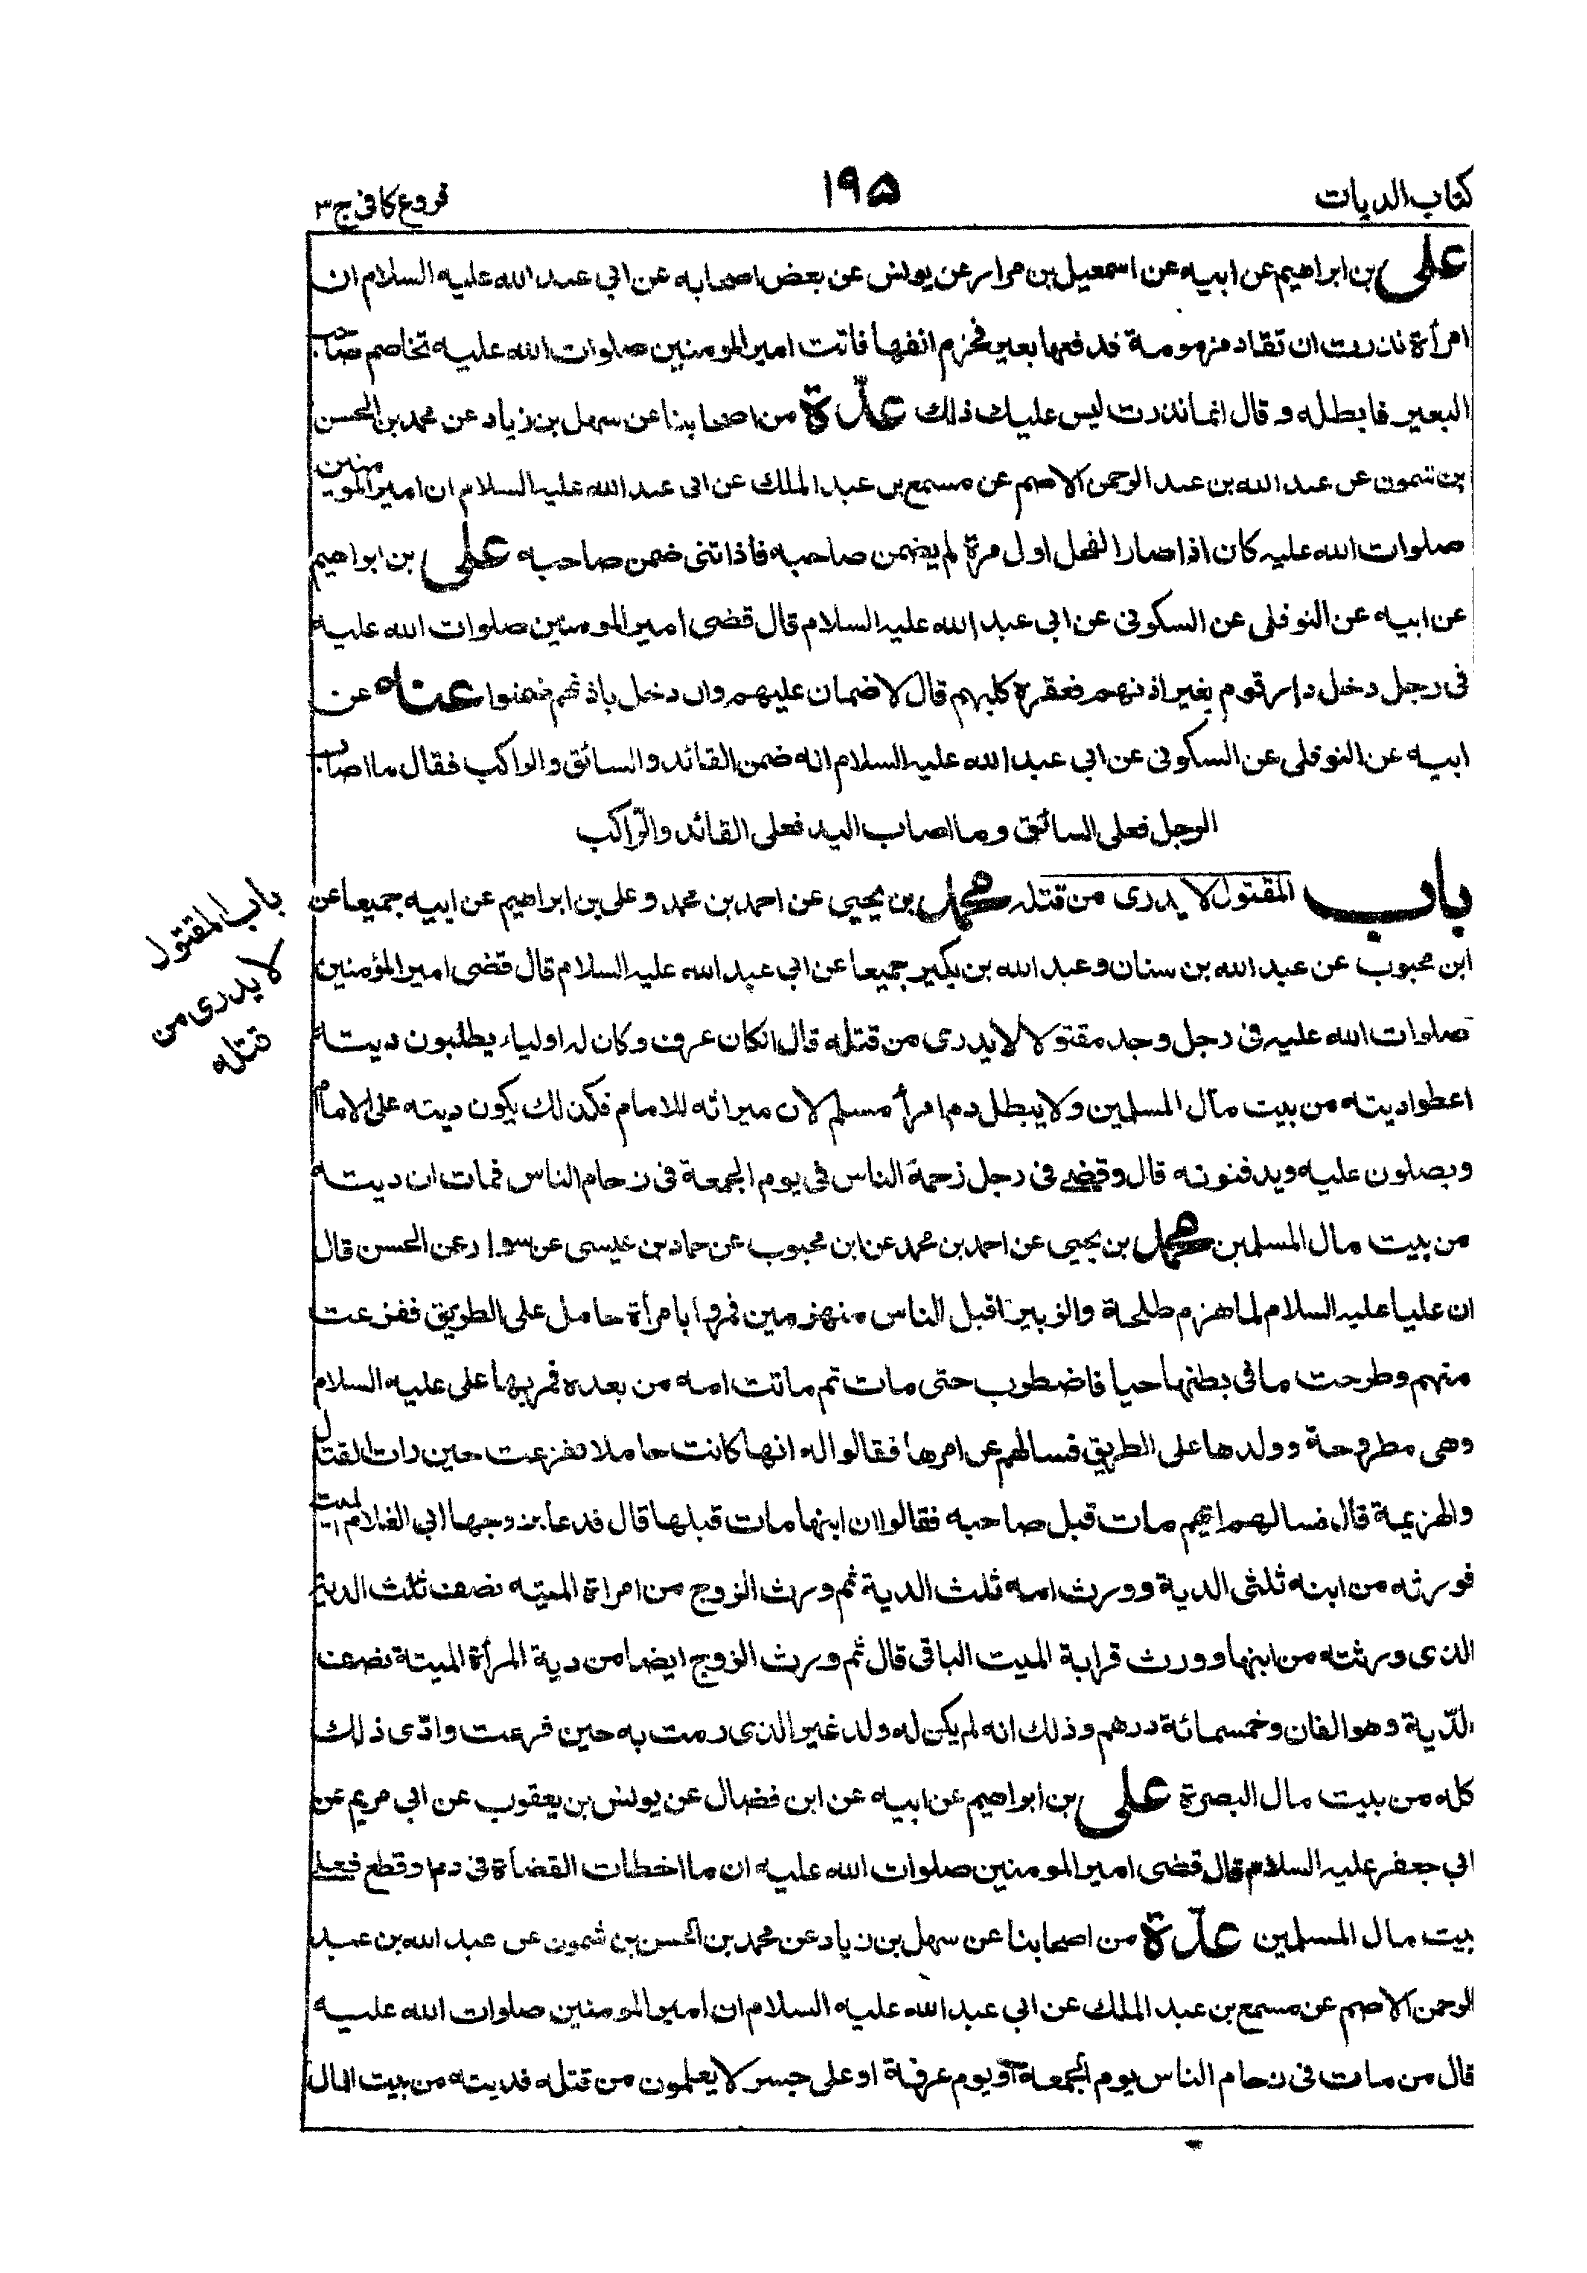 كتاب الديات
١٩٥
فروع كافى ج ٣
على بن ابراهيم عن ابيه عن اسمعيل بن مرار عن يونس عن بعض اصحابه عن ابي عبد الله عليه السلام ان
امرأة نذرت ان تقاد مزمومة فدفعها بعير فخزم انفها فاتت امير المومنين صلوات الله عليه تخاصم صاحب
البعير فابطله وقال انما نذرت ليس عليك ذلك عدّة من اصحابنا عن سهل بن زياد عن محمد بن الحسن
بن شمون عن عبد الله بن عبد الرحمن الاصم عن مسمع بن عبد الملك عن ابى عبد الله عليه السلام ان امير المومنين
صلوات الله عليه كان اذا صار الفحل اول مرة لم يضمن صاحبه فاذا ثنى ضمن صاحبه على بن ابراهيم
عن ابيه عن النوفلى عن السكونى عن ابي عبد الله عليه السلام قال قضى امير المومنين صلوات الله عليه
فى رجل دخل دار قوم بغير اذنهم فعقره كلبهم قال لا ضمان عليهم وان دخل باذنهم ضمنوا عنه عن
ابيه عن النوفلى عن السكونى عن ابي عبد الله عليه السلام انه ضمن القائد والسائق والراكب فقال ما اصاب
الرجل فعلى السائق وما اصاب اليد فعلى القائد والرّاكب
باب المقتول لا يدرى من قتله محمد بن يحيى عن احمد بن محمد وعلى بن ابراهيم عن ابيه جميعا عن
ابن محبوب عن عبد الله بن سنان وعبد الله بن بكير جميعا عن ابي عبد الله عليه السلام قال قضى امير المؤمنين
صلوات الله عليه فى رجل وجد مقتولا لا يدرى من قتله قال ان كان عرف وكان له اولياء يطلبون ديته
اعطوا ديته من بيت مال المسلمين ولا يبطل دم امرأ مسلم لان ميراثه للامام فكذلك يكون ديته على الامام
ويصلون عليه ويدفنونه قال وقضى فى رجل زحمه الناس فى يوم الجمعة فى زحام الناس فمات ان ديته
من بيت مال المسلمين محمد بن يحيى عن احمد بن محمد عن ابن محبوب عن حماد بن عيسى عن سوار عن الحسن قال
ان عليا عليه السلام لما هزم طلحة والزبير اقبل الناس منهزمين فمروا بامرأة حامل على الطريق ففزعت
منهم وطرحت ما فى بطنها حيا فاضطرب حتى مات ثم ماتت امه من بعده فمر بها على عليه السلام
وهى مطروحة وولدها على الطريق فسالهم عن امرها فقالوا له انها كانت حاملا ففزعت حين رات القتال
والهزيمة قال فسالهم ايهم مات قبل صاحبه فقالوا ان ابنها مات قبلها قال فدعا بزوجها ابى الغلام الميت
فورثه من ابنه ثلثى الدية وورث امه ثلث الدية ثم ورث الزوج من امراة الميته نصف ثلث الدية
الذى ورثته من ابنها وورث قرابة الميت الباقى قال ثم ورث الزوج ايضا من دية المرأة الميتة نصف
الدّية وهو الفان وخمسمائة درهم وذلك انه لم يكن له ولد غير الذى رمت به حين فزعت وادّى ذلك
كله من بيت مال البصرة على بن ابراهيم عن ابيه عن ابن فضال عن يونس بن يعقوب عن ابي مريم عن
ابي جعفر عليه السلام قال قضى امير المومنين صلوات الله عليه ان ما اخطات القضاة فى دم او قطع فعلى
بيت مال المسلمين عدّة من اصحابنا عن سهل بن زياد عن محمد بن الحسن بن شمون عن عبد الله بن عبد
الرحمن الاصم عن مسمع بن عبد الملك عن ابي عبد الله عليه السلام ان امير المومنين صلوات الله عليه
قال من مات فى زحام الناس يوم الجمعة او يوم عرفة او على جسر لا يعلمون من قتله فديته من بيت المال
باب المقتول
لا يدرى من
قتله